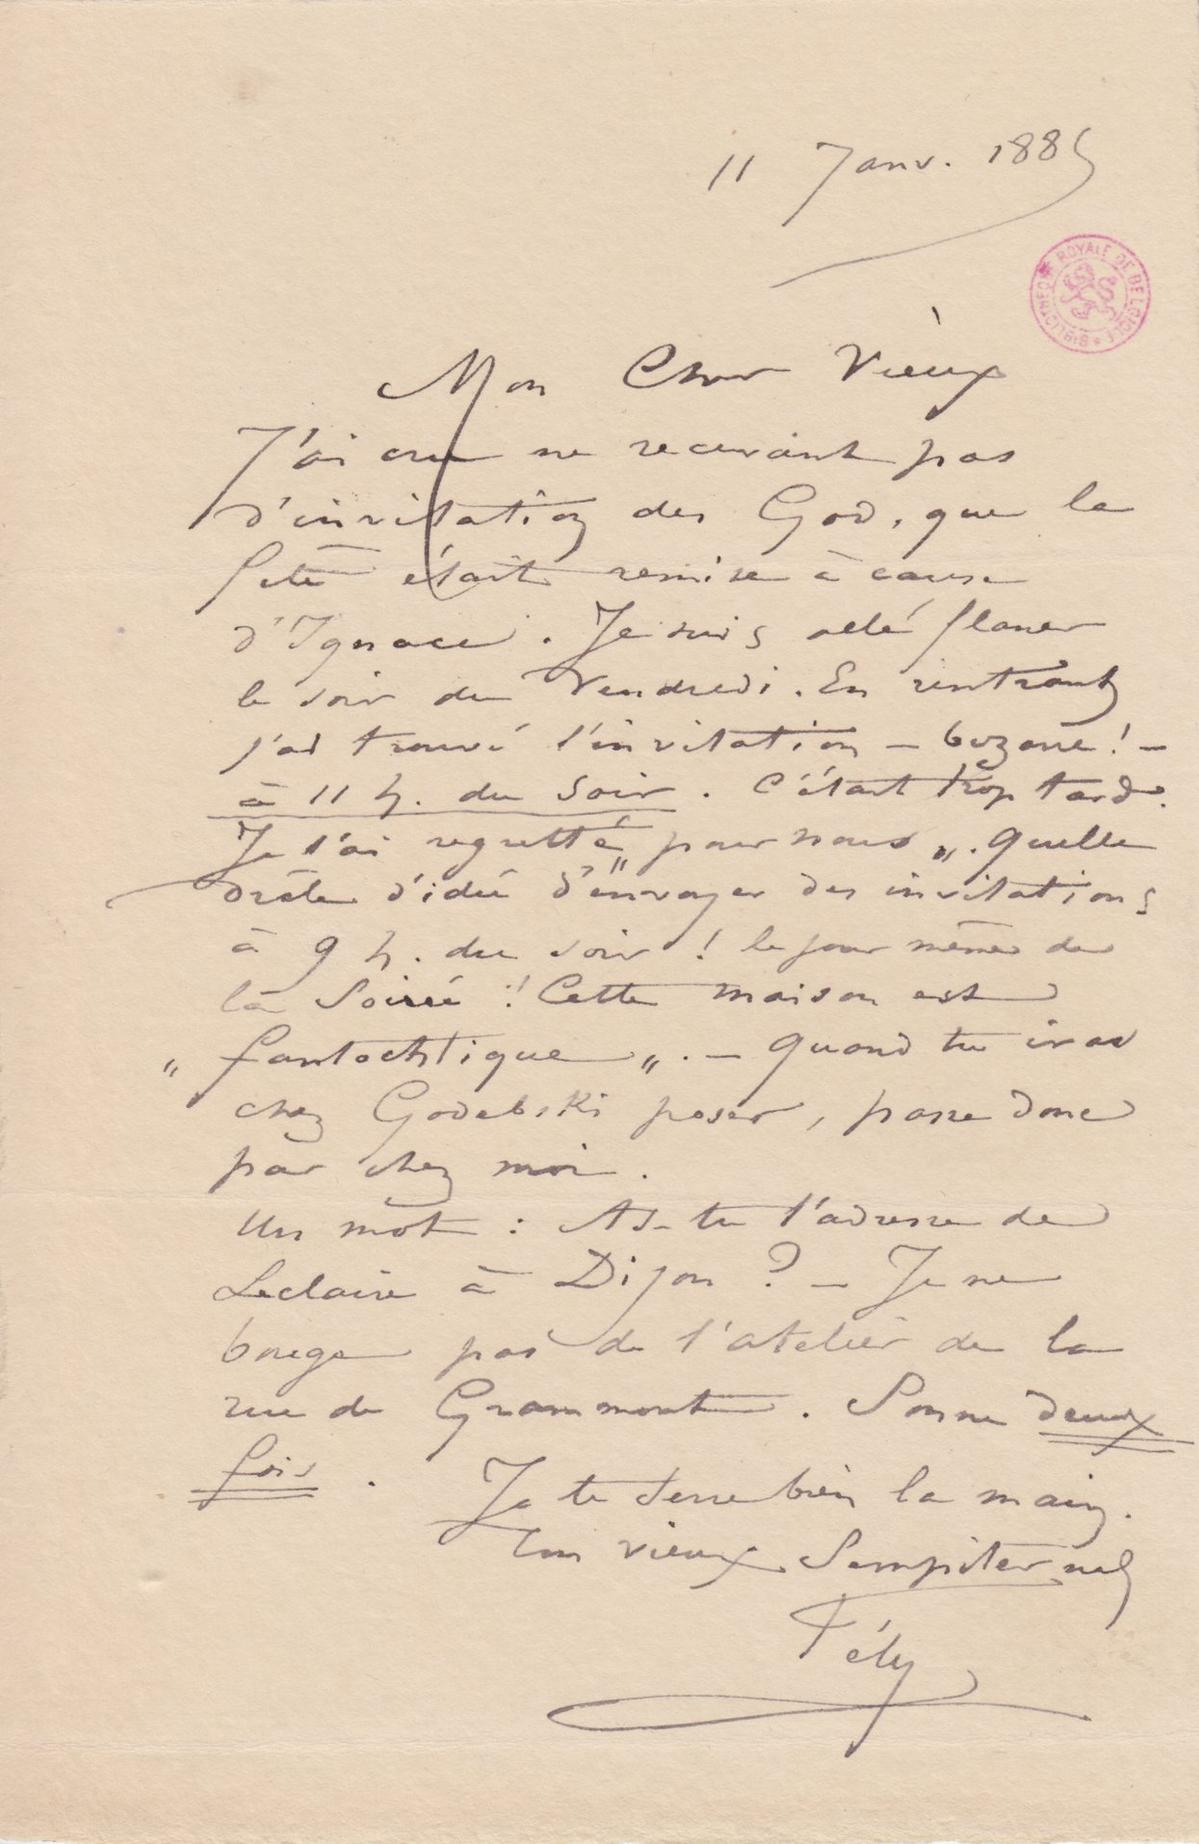 11 Janv. 1885
BIBLIOTHEQUE ROYALE DE BELGIQUE
Mon Cher Vieux
J'ai cru ne recevant pas
d'invitation des God, que la
fête était remise à cause
d'Ignace. Je suis allé flaner
le soir du Vendredi. En rentrant
j'ai trouvé l'invitation – bizarre! –
à 11 h. du Soir. C'était trop tard.
Je l'ai regretté „pour nous„. Quelle
drôle d'idée d'envoyer des invitations
à 9 h. du soir! le jour même de
la Soirée! Cette maison est
„fantochtique„. – Quand tu iras
chez Godebski poser, passe donc
par chez moi.
Un mot : As-tu l'adresse de
Leclaire à Dijon? – Je ne
bouge pas de l'atelier de la
rue de Grammont. Sonne deux
fois.
Je te serre bien la main.
Ton vieux Sempiternel
Fély